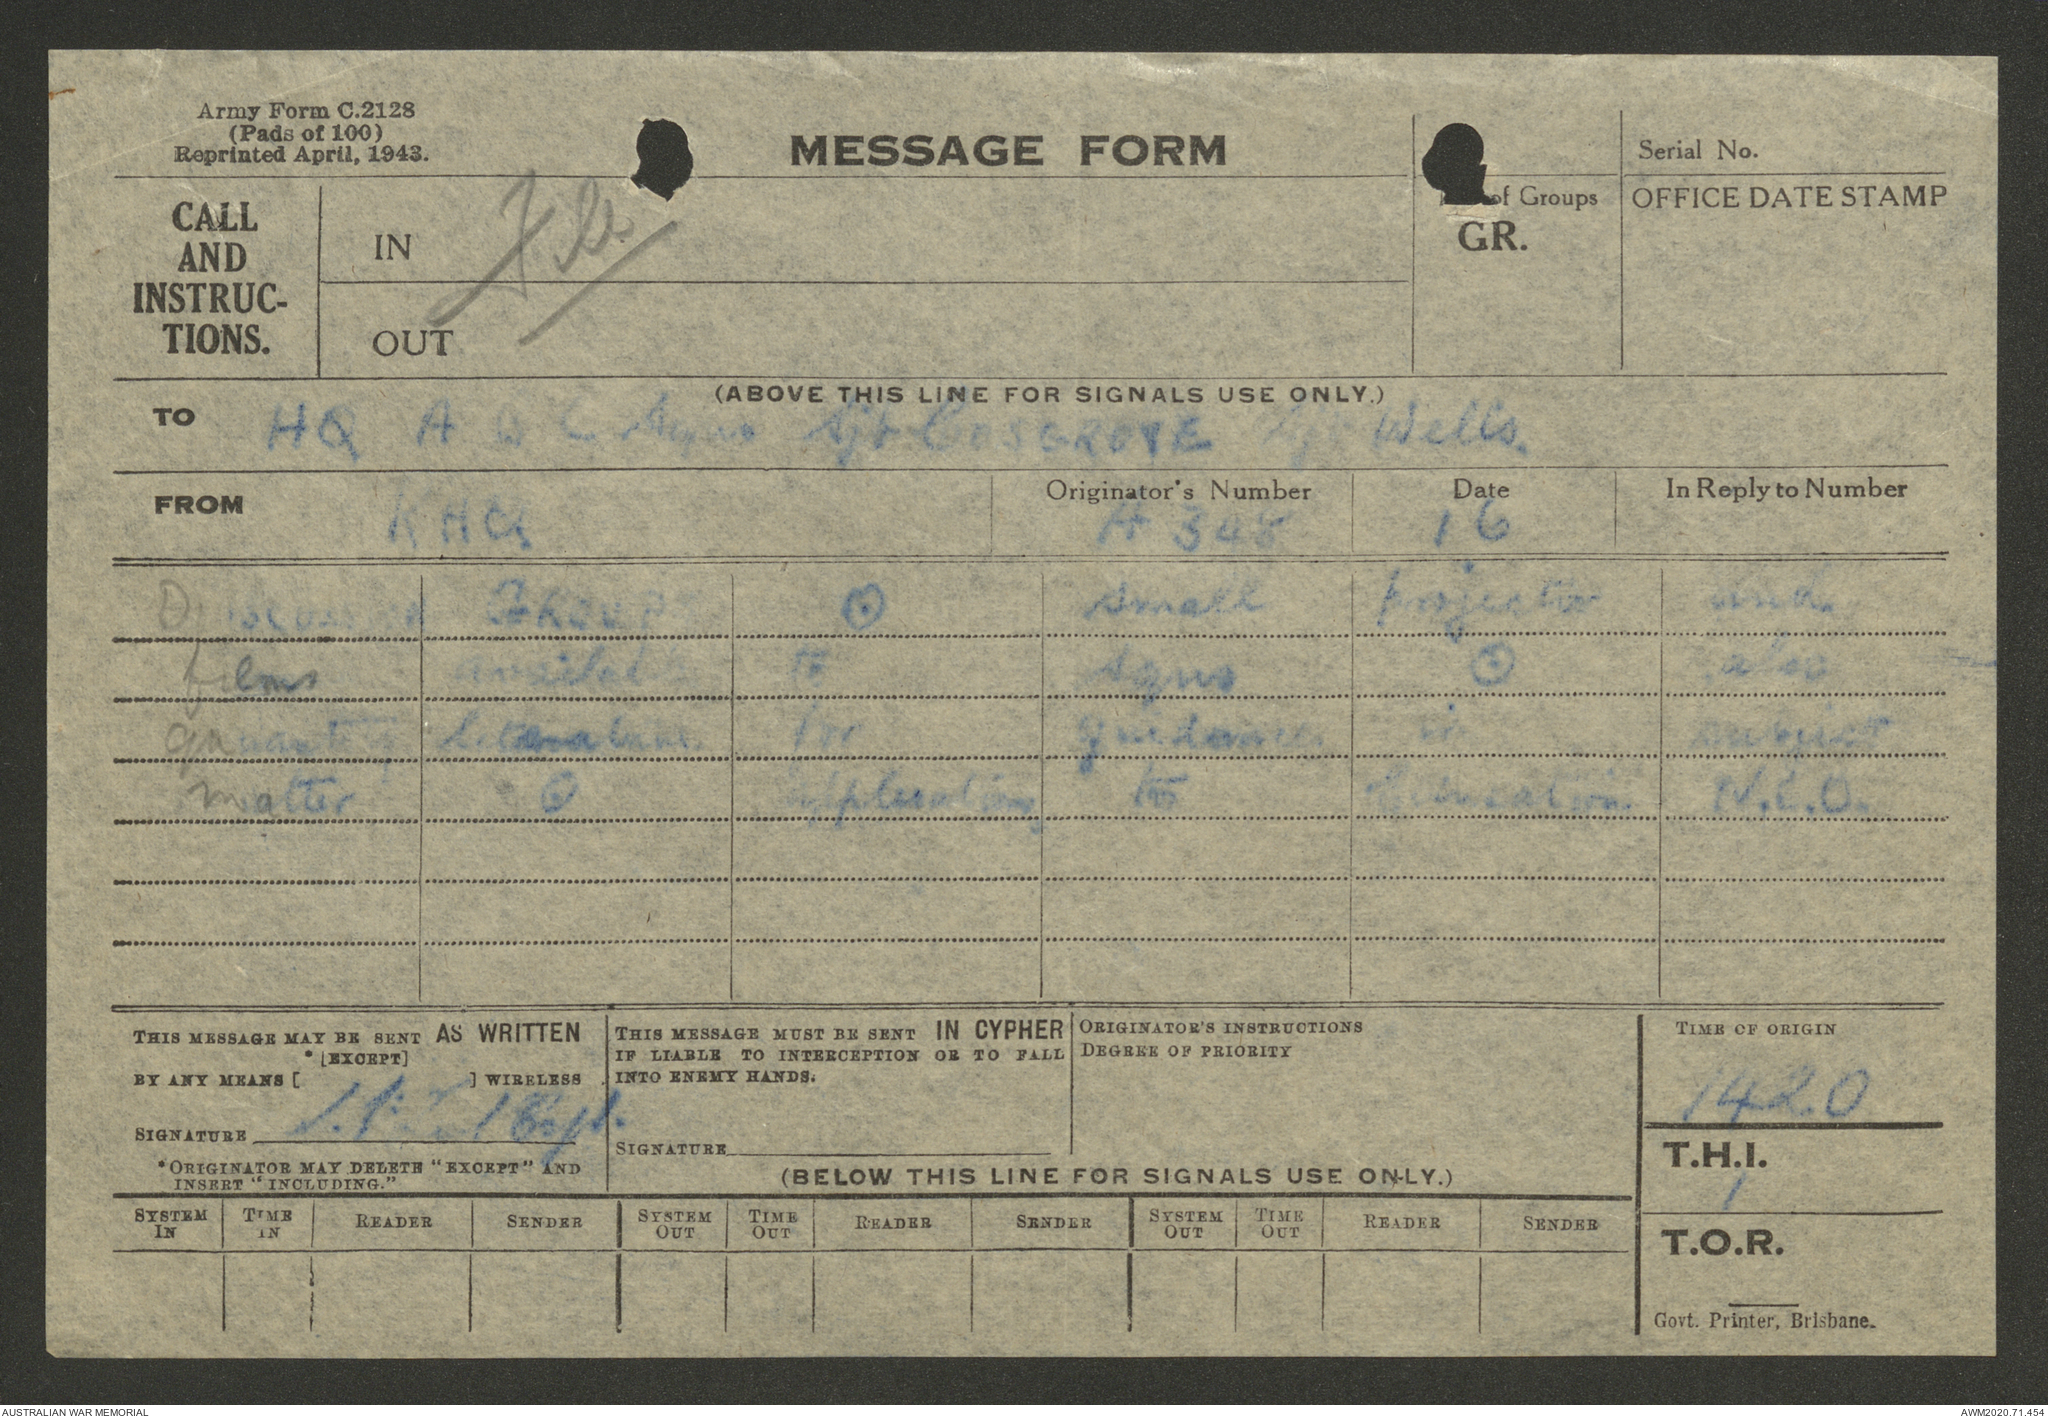 Army Form C.2128
(Pads of 100)
Reprinted April, 1943.
MESSAGE FORM
Serial No.
CALL AND INSTRUC- TIONS.
IN
File
OUT
of Groups
GR.
OFFICE DATE STAMP
(ABOVE THIS LINE FOR SIGNALS USE ONLY.)
TO HQ A W C Sigs Sjt COSGROVE Sjt Wells.
FROM KHQ
Originator's Number A 348
Date 16
In Reply to Number
Discussion GROUP ⊙ small projector and
films available to Sigs ⊙ also
quantity literature for guidance in subject
matter ⊙ application to Education N.C.O.
THIS MESSAGE MAY BE SENT AS WRITTEN
* [EXCEPT]
BY ANY MEANS [ ] WIRELESS
SIGNATURE Capt.
*ORIGINATOR MAY DELETE "EXCEPT" AND
INSERT "INCLUDING."
THIS MESSAGE MUST BE SENT IN CYPHER
IF LIABLE TO INTERCEPTION OR TO FALL
INTO ENEMY HANDS.
SIGNATURE
ORIGINATOR'S INSTRUCTIONS
DEGREE OF PRIORITY
TIME OF ORIGIN
1420
T.H.I.
(BELOW THIS LINE FOR SIGNALS USE ONLY.)
SYSTEM IN TIME IN READER SENDER SYSTEM OUT TIME OUT READER SENDER SYSTEM OUT TIME OUT READER SENDER
T.O.R.
Govt. Printer, Brisbane.
AUSTRALIAN WAR MEMORIAL
AWM2020.71.454